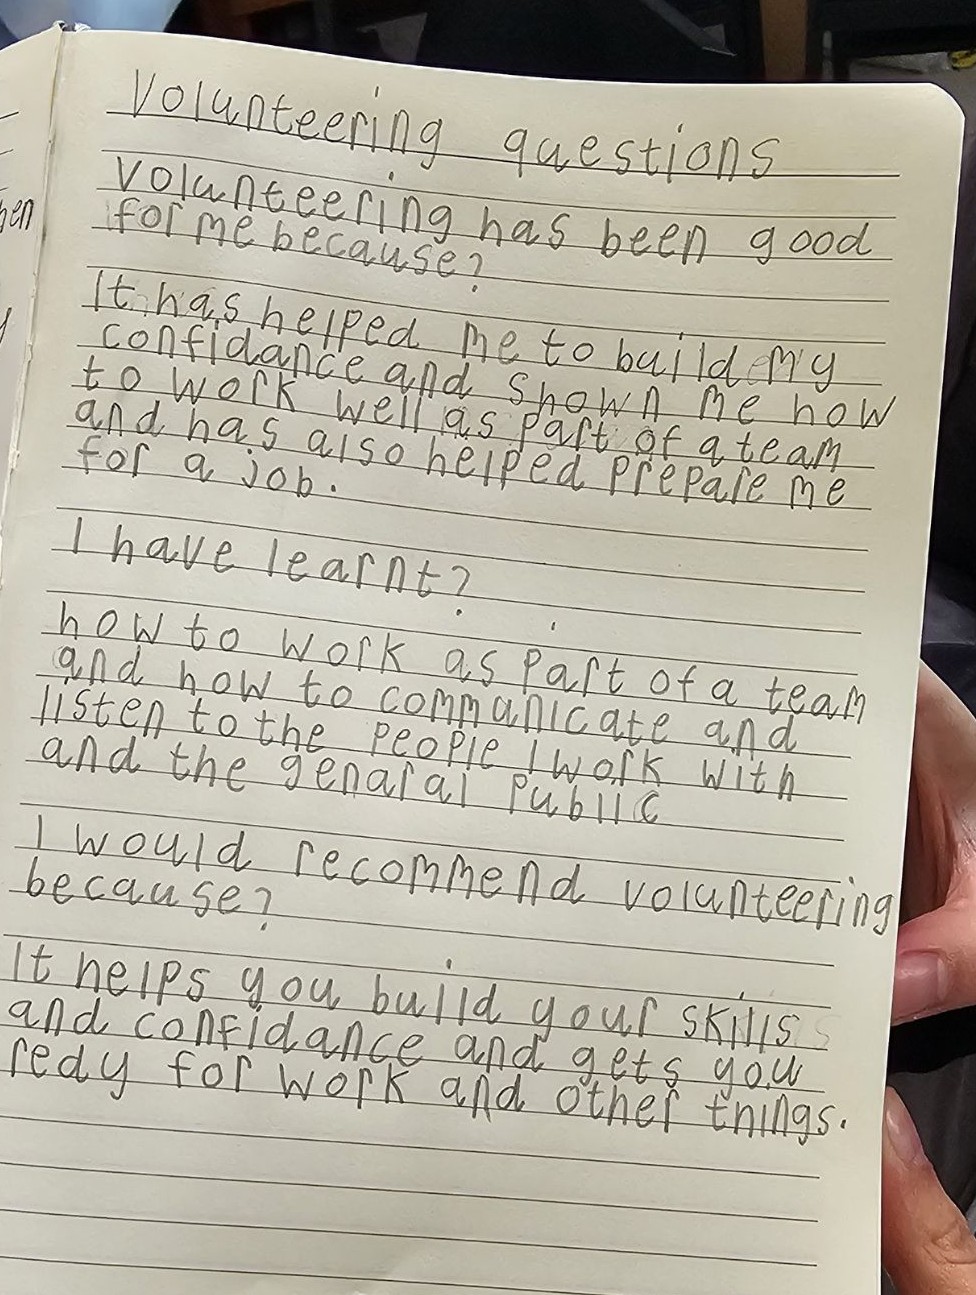 Volunteering questions
Volunteering has been good
for me because?
It has helped me to build my
confidance and shown me how
to work well as part of a team
and has also helped prepare me
for a job.
I have learnt?
how to work as part of a team
and how to communicate and
listen to the people I work with
and the genaral public
I would recommend volunteering
because?
It helps you build your skills
and confidance and gets you
redy for work and other things.